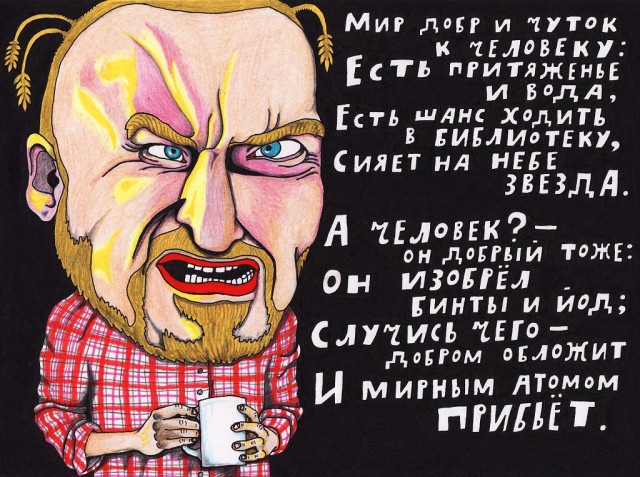 Мир добр и чуток
к человеку:
Есть притяженье
и вода,
Есть шанс ходить
в библиотеку,
Сияет на небе
звезда.
А человек? —
он добрый тоже:
Он изобрёл
бинты и йод;
Случись чего —
добром обложит
И мирным атомом
прибьёт.